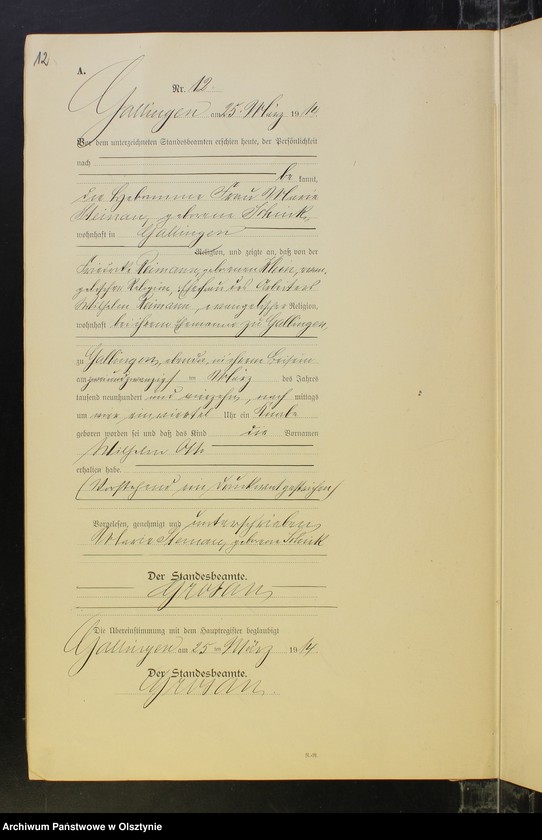 12
A.
Nr. 12
Gallingen am 25. März 1914.
Vor dem unterzeichneten Standesbeamten erschien heute, der Persönlichkeit
nach
be kannt,
die Hebamme Frau Marie
geborene Schink,
wohnhaft in Gallingen
Religion, und zeigte an, daß von der
Reimann, geborenen Klein, evan-
gelischer Religion, Ehefrau des Arbeiters
Wilhelm Reimann, evangelischer Religion,
wohnhaft bei ihrem Ehemanne zu Gallingen,
zu Gallingen, ebenda, in ihrem Beisein
am zweiundzwanzigsten März des Jahres
tausend neunhundert und vierzehn, nach mittags
um Uhr ein Knabe
geboren worden sei und daß das Kind die Vornamen
Wilhelm Otto
erhalten habe.
(Vorstehend ein Druckwort gestrichen)
Vorgelesen, genehmigt und unterschrieben
Marie geborene Schink
Der Standesbeamte.
Grosan
Die Übereinstimmung mit dem Hauptregister beglaubigt
Gallingen am 25. März 1914.
Der Standesbeamte.
Grosan.
Archiwum Państwowe w Olsztynie